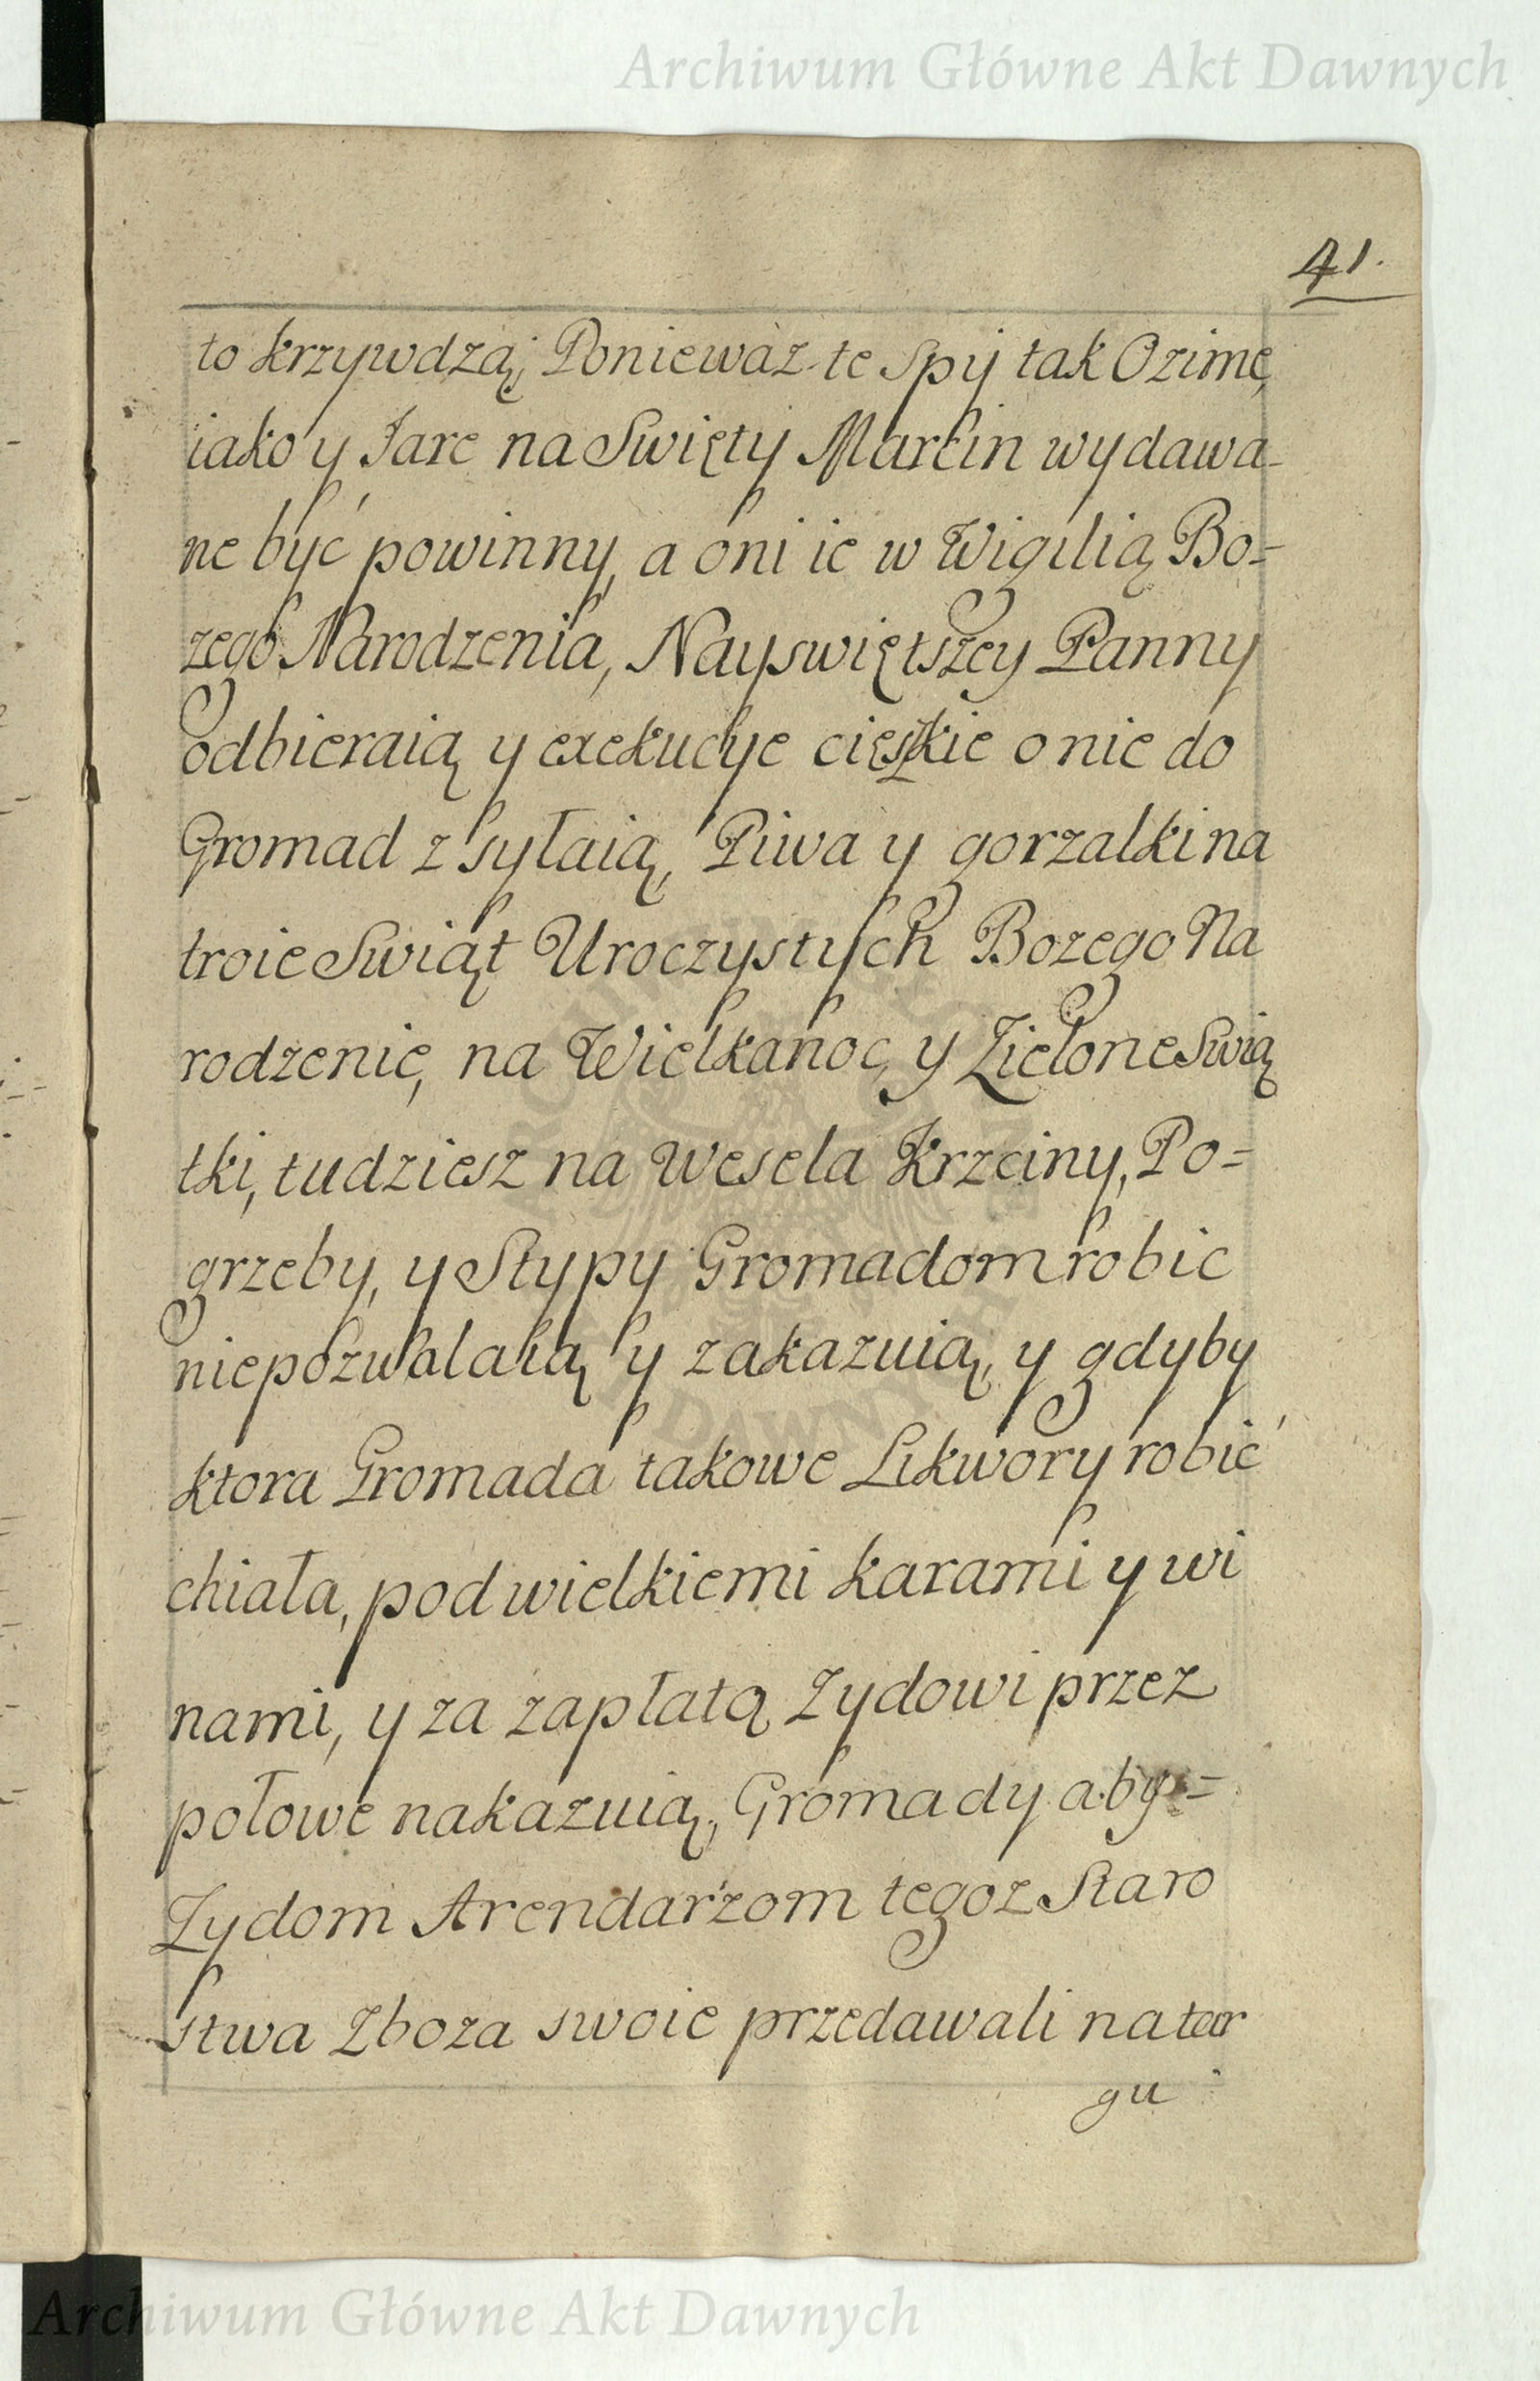 Archiwum Główne Akt Dawnych
41.
to krzywdzą; Ponieważ te Spy tak Ozime,
iako y Jare na Swięty Marcin wydawa-
ne być powinny, a oni ie w Wigilią Bo=
zego Narodzenia, Nayswiętszey Panny
odbieraią y exekucye cięszkie o nie do
Gromad zsyłaią, Piwa y gorzalki na
troie Swiąt Uroczystych Bozego Na
rodzenie, na Wielkanoc, y Zielone Swią
tki, tudziesz na Wesela Krzciny, Po=
grzeby, y Stypy Gromadom robic
niepozwalaią y zakazuią, y gdyby
ktora Gromada takowe Likwory robić
chiała, pod wielkiemi karami y wi
nami, y za zapłatą Zydowi przez
połowe nakazuią, Gromady aby=
Zydom Arendarzom tegoz Staro
stwa Zboza swoie przedawali na tar
gu
Archiwum Główne Akt Dawnych